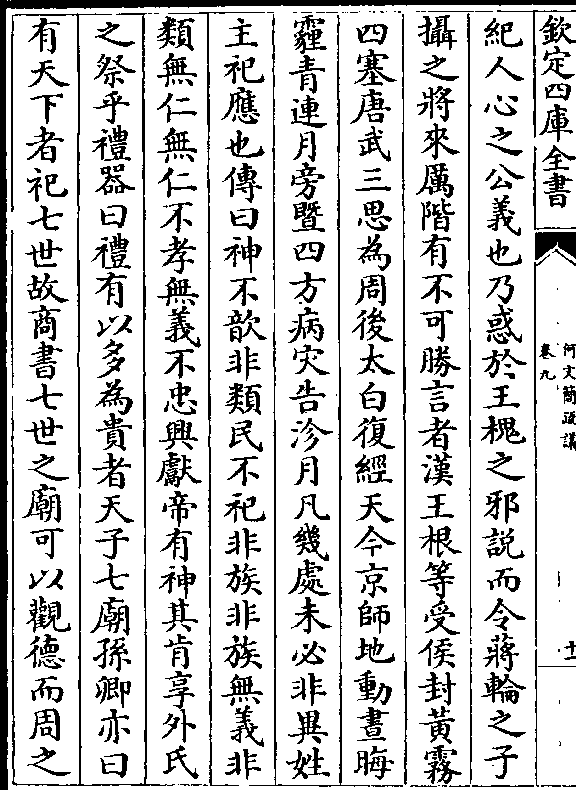 欽定四庫全書
何文簡疏議
卷九
十一
紀人心之公義也乃惑於王槐之邪說而令蔣輪之子
攝之將來厲階有不可勝言者漢王根等受侯封黃霧
四塞唐武三思為周後太白復經天今京師地動晝晦
霾青連月旁暨四方病灾告沴月凡幾處未必非異姓
主祀應也傳曰神不歆非類民不祀非族非族無義非
類無仁無仁不孝無義不忠興獻帝有神其肯享外氏
之祭乎禮器曰禮有以多為貴者天子七廟孫卿亦曰
有天下者祀七世故商書七世之廟可以觀德而周之